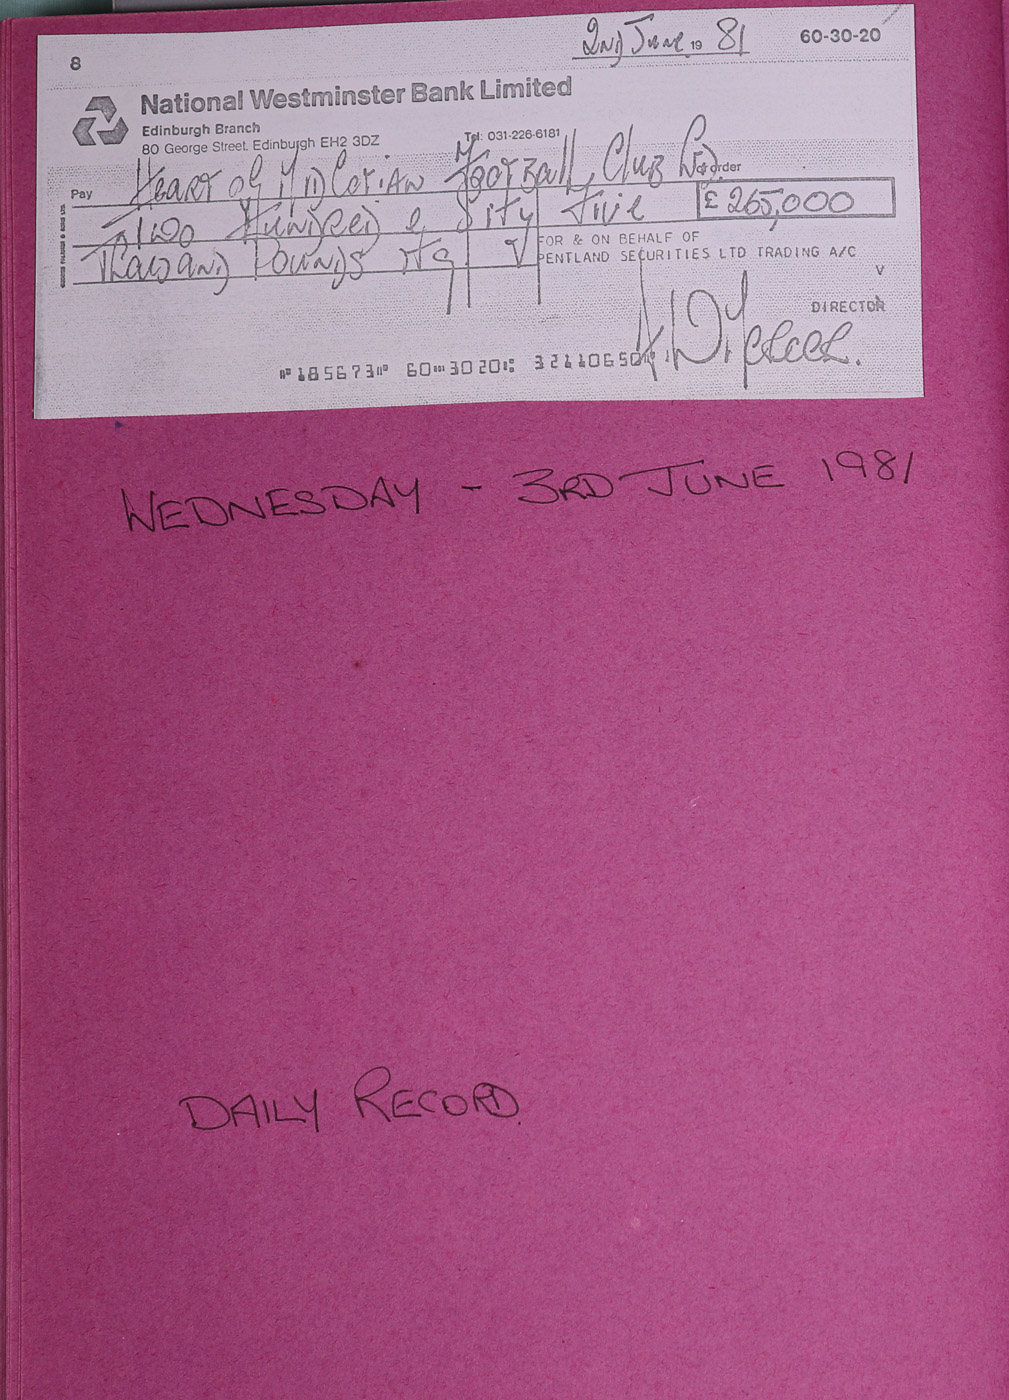 2nd June 1981 60-30-20
8
National Westminster Bank Limited
Edinburgh Branch
80 George Street, Edinburgh EH2 3DZ Tel: 031-226-6181
Pay Heart of Midlothian Football Club Ltd or order
Two Hundred & Sixty Five £ 265,000
Thousand Pounds
FOR & ON BEHALF OF
PENTLAND SECURITIES LTD TRADING A/C
V
DIRECTOR
⑈185673⑈ 60⑉3020⑆
WEDNESDAY - 3RD JUNE 1981
DAILY RECORD